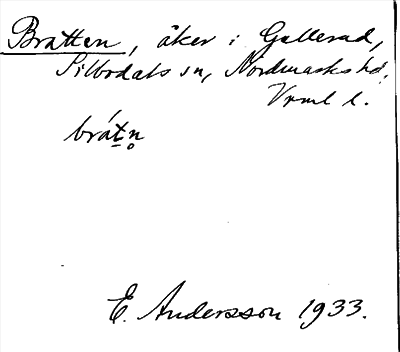 Bratten, åker i Gallerud,
Silbodals sn, Nordmarks hd.
Vrml l.
brát̲n̥
E. Andersson 1933.